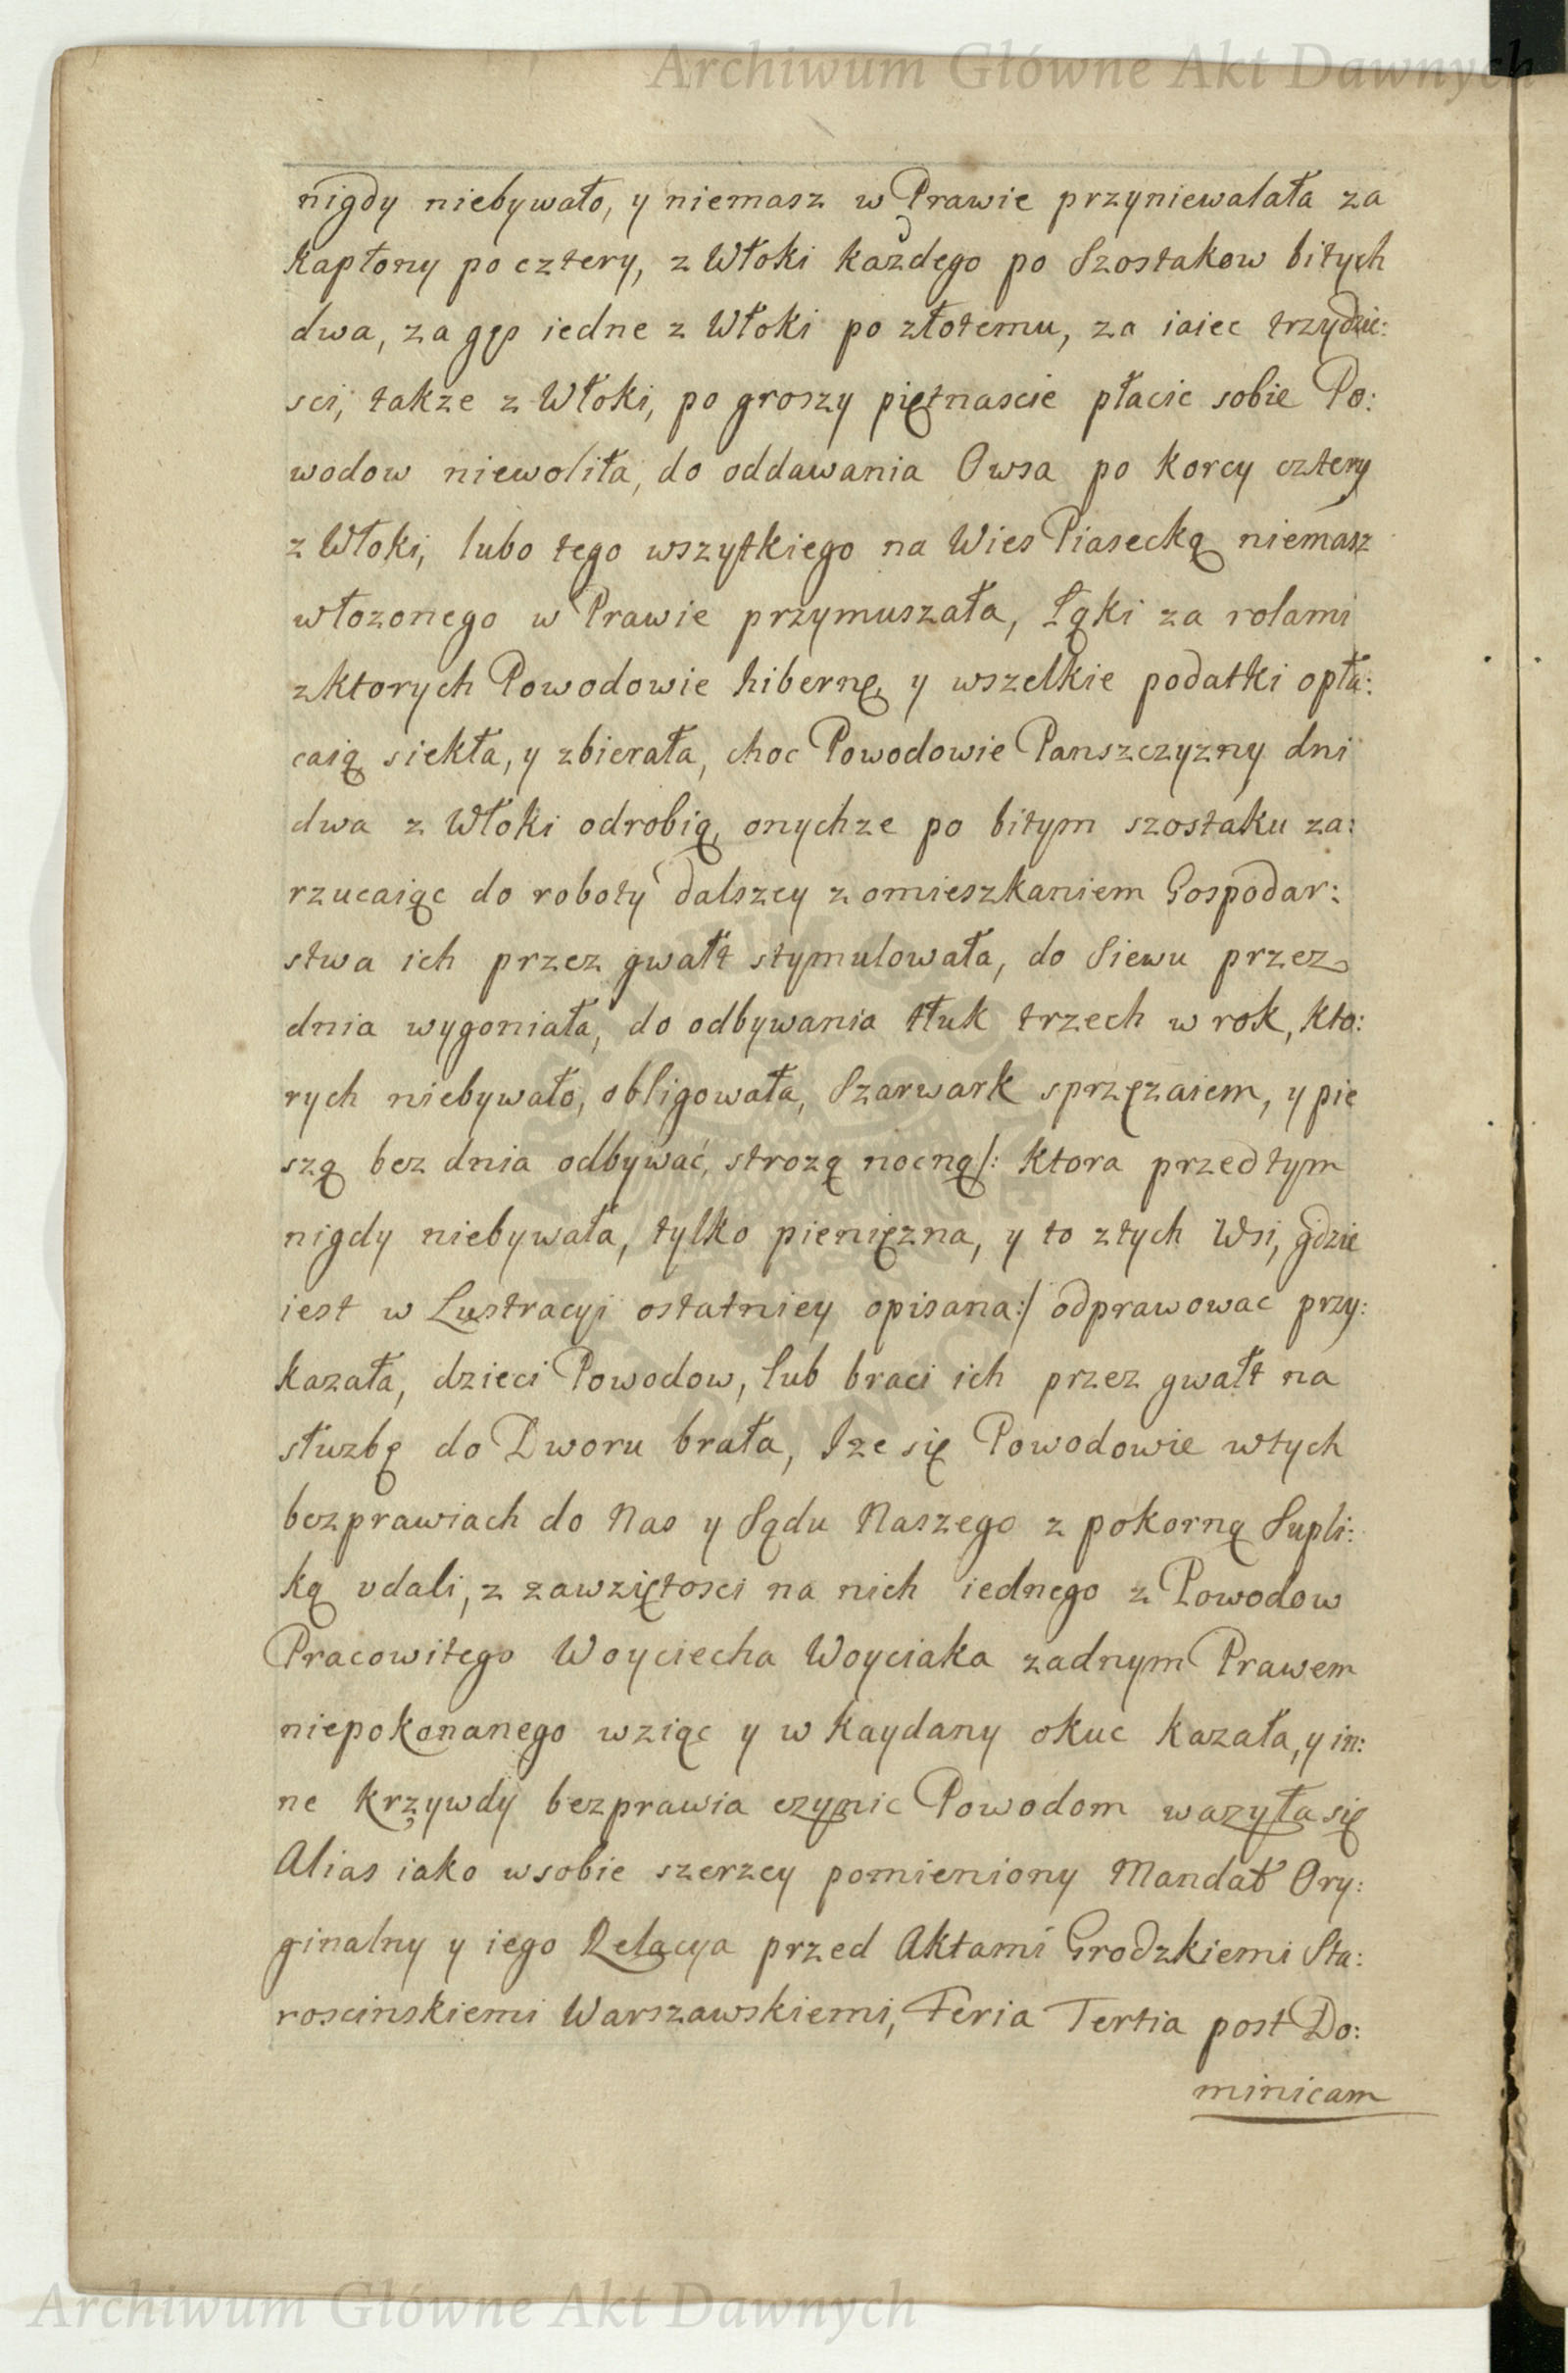 Archiwum Główne Akt Dawnych
nigdy niebywało, y niemasz w Prawie przyniewalała za
kapłony po cztery, z Włoki kazdego po Szostakow bitych
dwa, za gęs iedne z Włoki po złotemu, za iaiec trzydzie:
sci, takze z Włoki, po groszy piętnascie płacic sobie Po:
wodow niewoliła, do oddawania Owsa po korcy cztery
z Włoki, lubo tego wszytkiego na Wies Piasecką niemasz
włozonego w Prawie przymuszała, Łąki za rolami
zktorych Powodowie hibernę, y wszelkie podatki opła:
caią siekła, y zbierała, choc Powodowie Panszczyzny dni
dwa z Włoki odrobią, onychze po bitym szostaku za:
rzucaiąc do roboty dalszey z omieszkaniem Gospodar:
stwa ich przez gwałt stymulowała, do Siewu przez
dnia wygoniała, do odbywania tłuk trzech w rok, kto:
rych niebywało, obligowała, Szarwark sprzęzaiem, y pie
szą bez dnia odbywać, strozą nocną /: ktora przedtym
nigdy niebywała, tylko pienięzna, y to ztych Wsi, gdzie
iest w Lustracyi ostatniey opisana :/ odprawowac przy:
kazała, dzieci Powodow, lub braci ich przez gwałt na
słuzbę do Dworu brała, Ize się Powodowie wtych
bezprawiach do Nas y Sądu Naszego z pokorną Supli:
ką udali, z zawziętosci na nich iednego z Powodow
Pracowitego Woyciecha Woyciaka zadnym Prawem
niepokonanego wziąc y w kaydany okuc kazała, y in:
ne krzywdy bezprawia czynic Powodom wazyła się
Alias iako wsobie szerzey pomieniony Mandat Ory:
ginalny y iego Relacya przed Aktami Grodzkiemi Sta:
roscinskiemi Warszawskiemi, Feria Tertia post Do:
minicam
Archiwum Główne Akt Dawnych